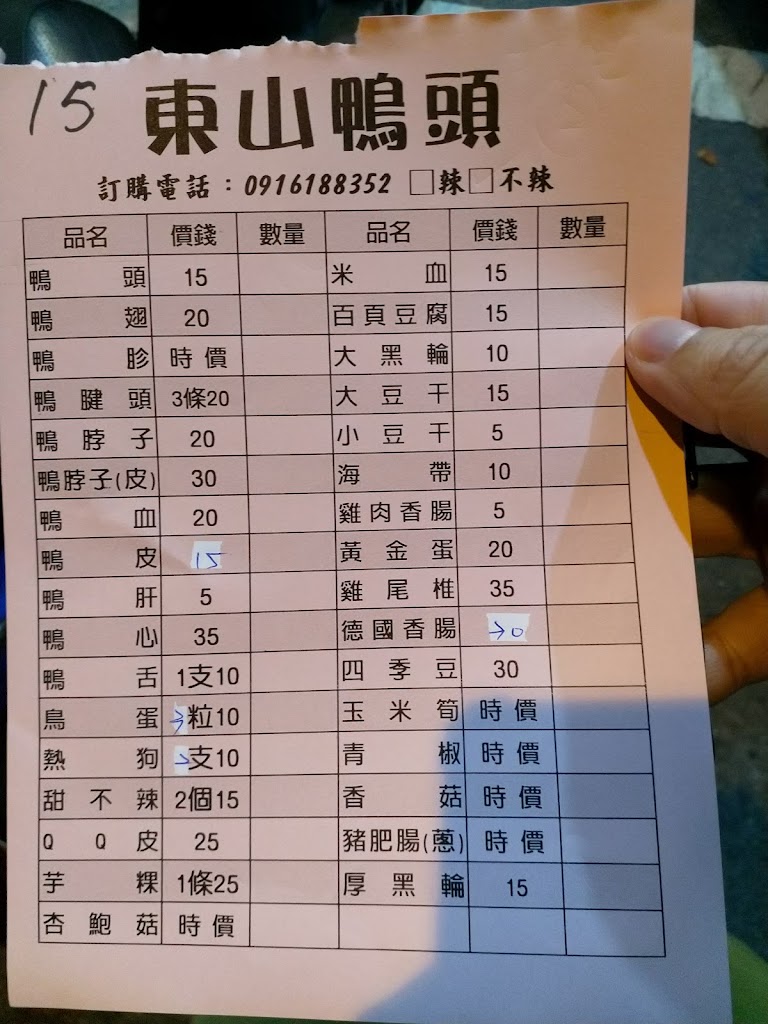 15 東山鴨頭
訂購電話：0916188352 □辣□不辣
品名 價錢 數量 品名 價錢 數量
鴨頭 15 米血 15
鴨翅 20 百頁豆腐 15
鴨胗 時價 大黑輪 10
鴨腱頭 3條20 大豆干 15
鴨脖子 20 小豆干 5
鴨脖子(皮) 30 海帶 10
鴨血 20 雞肉香腸 5
鴨皮 15 黃金蛋 20
鴨肝 5 雞尾椎 35
鴨心 35 德國香腸
鴨舌 1支10 四季豆 30
鳥蛋 粒10 玉米筍 時價
熱狗 支10 青椒 時價
甜不辣 2個15 香菇 時價
QQ皮 25 豬肥腸(蔥) 時價
芋粿 1條25 厚黑輪 15
杏鮑菇 時價